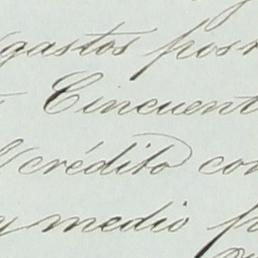 gastos pos
Cincuent
crédito con
y medio p